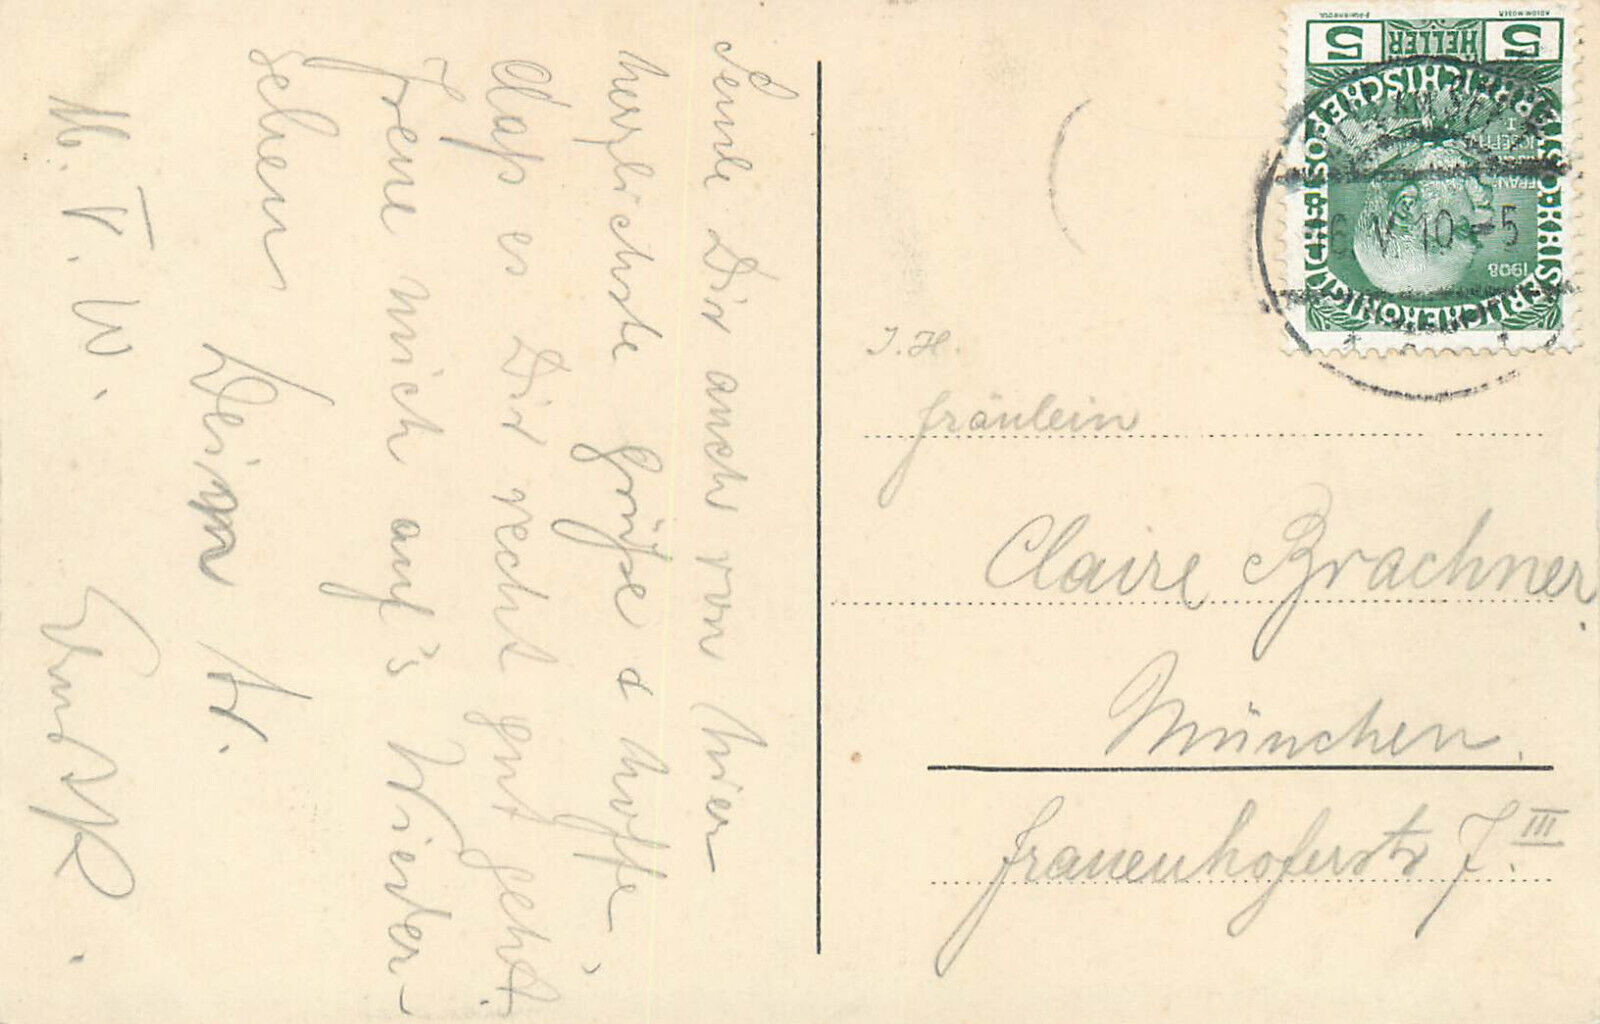 Sende Dir auch von hier
herzlichste Grüße & hoffe,
dass es Dir recht gut geht.
Freue mich auf's Wieder-
sehen
Dein
W. V. W.
J. H.
Fräulein
Claire Brachner
München.
Frauenhoferstr 7.III
5 HELLER 5
KAISERLICHE KÖNIGLICHE ÖSTERREICHISCHE POST
FRANZ
JOSEPH I.
1908
KOLOM. MOSER
V 10 -5